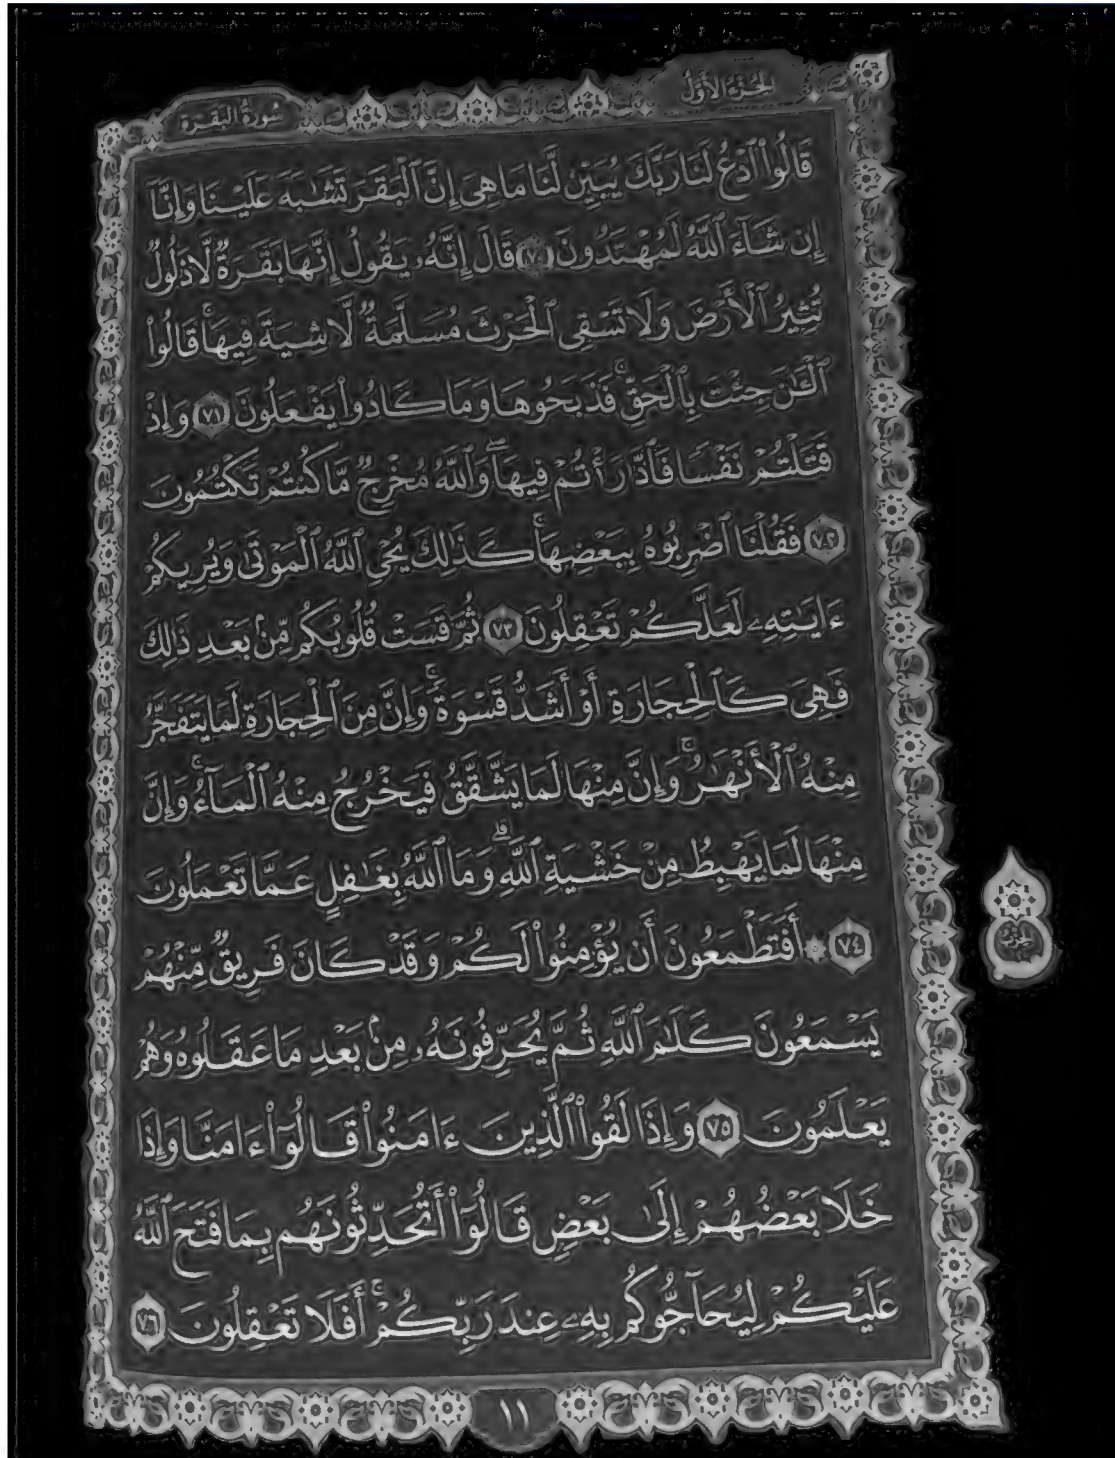 الجُزْءُ الأَوَّلُ
سُورَةُ البَقَرَةِ
قَالُوا۟ ٱدْعُ لَنَا رَبَّكَ يُبَيِّن لَّنَا مَا هِىَ إِنَّ ٱلْبَقَرَ تَشَٰبَهَ عَلَيْنَا وَإِنَّآ
إِن شَآءَ ٱللَّهُ لَمُهْتَدُونَ ٧٠ قَالَ إِنَّهُۥ يَقُولُ إِنَّهَا بَقَرَةٌ لَّا ذَلُولٌ
تُثِيرُ ٱلْأَرْضَ وَلَا تَسْقِى ٱلْحَرْثَ مُسَلَّمَةٌ لَّا شِيَةَ فِيهَا ۚ قَالُوا۟
ٱلْـَٰٔنَ جِئْتَ بِٱلْحَقِّ ۚ فَذَبَحُوهَا وَمَا كَادُوا۟ يَفْعَلُونَ ٧١ وَإِذْ
قَتَلْتُمْ نَفْسًا فَٱدَّٰرَْٰٔتُمْ فِيهَا ۖ وَٱللَّهُ مُخْرِجٌ مَّا كُنتُمْ تَكْتُمُونَ
٧٢ فَقُلْنَا ٱضْرِبُوهُ بِبَعْضِهَا ۚ كَذَٰلِكَ يُحْىِ ٱللَّهُ ٱلْمَوْتَىٰ وَيُرِيكُمْ
ءَايَٰتِهِۦ لَعَلَّكُمْ تَعْقِلُونَ ٧٣ ثُمَّ قَسَتْ قُلُوبُكُم مِّنۢ بَعْدِ ذَٰلِكَ
فَهِىَ كَٱلْحِجَارَةِ أَوْ أَشَدُّ قَسْوَةً ۚ وَإِنَّ مِنَ ٱلْحِجَارَةِ لَمَا يَتَفَجَّرُ
مِنْهُ ٱلْأَنْهَٰرُ ۚ وَإِنَّ مِنْهَا لَمَا يَشَّقَّقُ فَيَخْرُجُ مِنْهُ ٱلْمَآءُ ۚ وَإِنَّ
مِنْهَا لَمَا يَهْبِطُ مِنْ خَشْيَةِ ٱللَّهِ ۗ وَمَا ٱللَّهُ بِغَٰفِلٍ عَمَّا تَعْمَلُونَ
٧٤ ۞ أَفَتَطْمَعُونَ أَن يُؤْمِنُوا۟ لَكُمْ وَقَدْ كَانَ فَرِيقٌ مِّنْهُمْ
يَسْمَعُونَ كَلَٰمَ ٱللَّهِ ثُمَّ يُحَرِّفُونَهُۥ مِنۢ بَعْدِ مَا عَقَلُوهُ وَهُمْ
يَعْلَمُونَ ٧٥ وَإِذَا لَقُوا۟ ٱلَّذِينَ ءَامَنُوا۟ قَالُوٓا۟ ءَامَنَّا وَإِذَا
خَلَا بَعْضُهُمْ إِلَىٰ بَعْضٍ قَالُوٓا۟ أَتُحَدِّثُونَهُم بِمَا فَتَحَ ٱللَّهُ
عَلَيْكُمْ لِيُحَآجُّوكُم بِهِۦ عِندَ رَبِّكُمْ ۚ أَفَلَا تَعْقِلُونَ ٧٦
١١